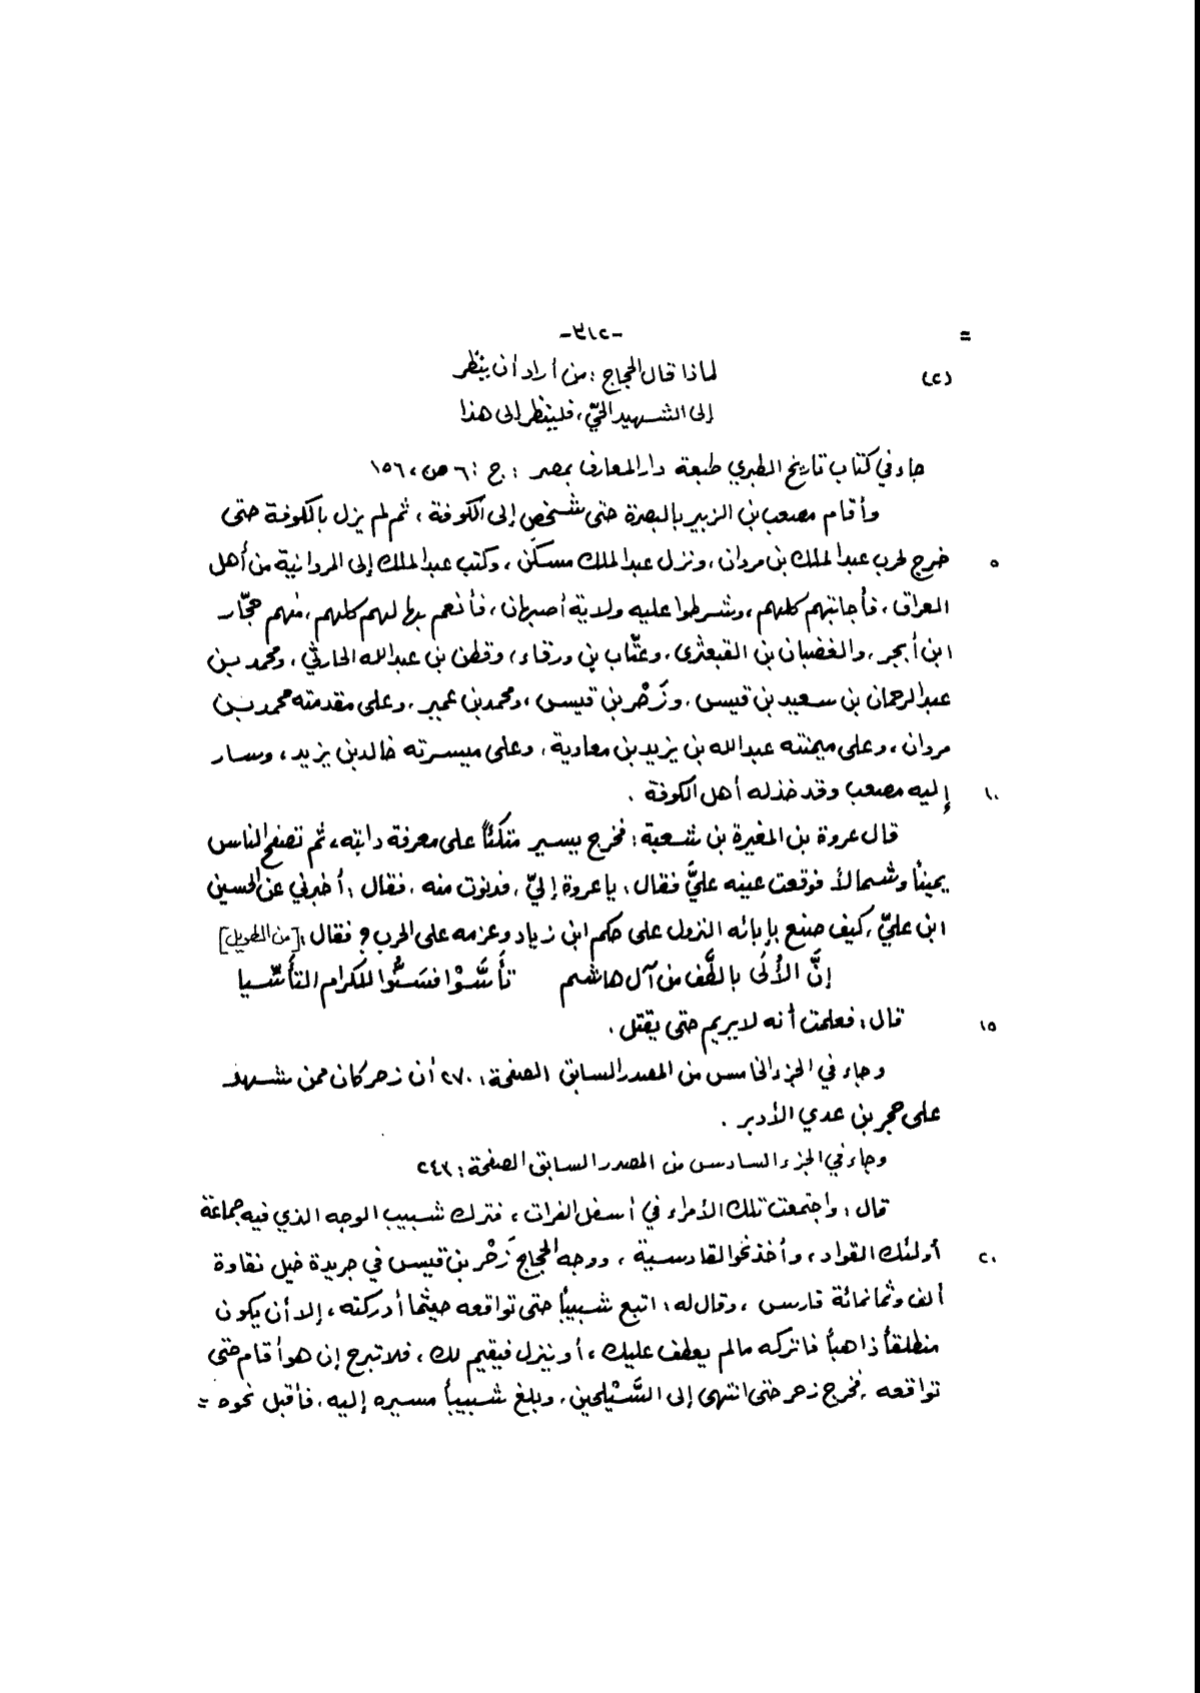 = -٢١٣-
(٢) لماذا قال الحجاج : من أراد أن ينظر
إلى الشهيد الحيّ ، فلينظر إلى هذا
جاء في كتاب تاريخ الطبري طبعة دار المعارف بمصر : ج : ٦ ص ، ١٥٦
وأقام مصعب بن الزبير بالبصرة حتى شخص إلى الكوفة ، ثم لم يزل بالكوفة حتى
٥ خرج لحرب عبد الملك بن مروان ، ونزل عبد الملك مسكن ، وكتب عبد الملك إلى المروانية من أهل
العراق ، فأجابتهم كلهم ، وشرطوا عليه ولاية أصبهان ، فأنعم بها لهم كلهم ، منهم حجّار
ابن أبجر ، والغضبان بن القبعثرى ، وعتّاب بن ورقاء ، وقطن بن عبد الله الحارثي ، ومحمد بن
عبد الرحمان بن سعيد بن قيس ، وزَحْر بن قيس ، ومحمد بن عمير ، وعلى مقدمته محمد بن
مروان ، وعلى ميمنته عبد الله بن يزيد بن معاوية ، وعلى ميسرته خالد بن يزيد ، وسار
١٠ إليه مصعب وقد خذله أهل الكوفة .
قال عروة بن المغيرة بن شعبة : فخرج يسير متكئاً على معرفة دابته ، ثم تصفح الناس
يميناً وشمالاً فوقعت عينه عليَّ فقال : يا عروة إليّ ، فدنوت منه ، فقال : أخبرني عن الحسين
ابن عليّ ، كيف صنع بإبائه النزول على حكم ابن زياد وعزمه على الحرب ؟ فقال : [من الطويل]
إنَّ الأُلَى بالطَّف من آل هاشم تأَسَّوْا فسَنُّوا للكرام التأَسِّيا
١٥ قال : فعلمت أنه لا يريم حتى يقتل .
وجاء في الجزء الخامس من المصدر السابق الصفحة : ٢٧٠ أن زحر كان ممن شهد
على حجر بن عدي الأدبر .
وجاء في الجزء السادس من المصدر السابق الصفحة : ٢٤٣
قال : واجتمعت تلك الأمراء في أسفل الفرات ، فترك شبيب الوجه الذي فيه جماعة
٢٠ أولئك القواد ، وأخذ نحو القادسية ، ووجه الحجاج زَحْر بن قيس في جريدة خيل نقاوة
ألف وثمانمائة فارس ، وقال له : اتبع شبيباً حتى تواقعه حيثما أدركته ، إلا أن يكون
منطلقاً ذاهباً فاتركه مالم يعطف عليك ، أو ينزل فيقيم لك ، فلا تبرح إن هو أقام حتى
تواقعه ، فخرج زحر حتى انتهى إلى السَّيْلحين ، وبلغ شبيباً مسيره إليه ، فأقبل نحوه =